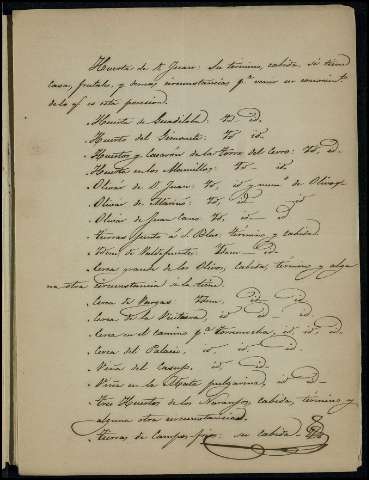 Huerta de Sn Juan: Su término, cabida, si tiene
casa, frutales, y demas circunstancias pa venir en conocimto
de lo qe es esta posesion.
. Huerta de Guadiloba: Yd id.
. Huerta del Yd id.
. Huertos y de la torre del Cerro: Yd, id.
. Huerta en los Yd id.
. Olivar de Sn Juan: Yd, id y numo de Olivos
. Olivar de Yd, id id
. Olivar de Juan Cano Yd, id id
. tierras junto á S. Blas, término, y cabida.
. Ydem. de Valdefuentes. Ydem id.
. Cerca grande de los Olivos, Cabida, término y algu
na otra circunstancia á la tierra.
. Cerca de Vargas Ydem. id
. Cerca de la id id id
. Cerca en el camino pa Torremocha, id, id, id
. Cerca del Palacio, id, id, id.
. Viña del id, id.
. Viña en la id id
. tres Huertos de los Naranjos, cabida, término y
alguna otra circunstancia.
. tierras de Campo su cabida id